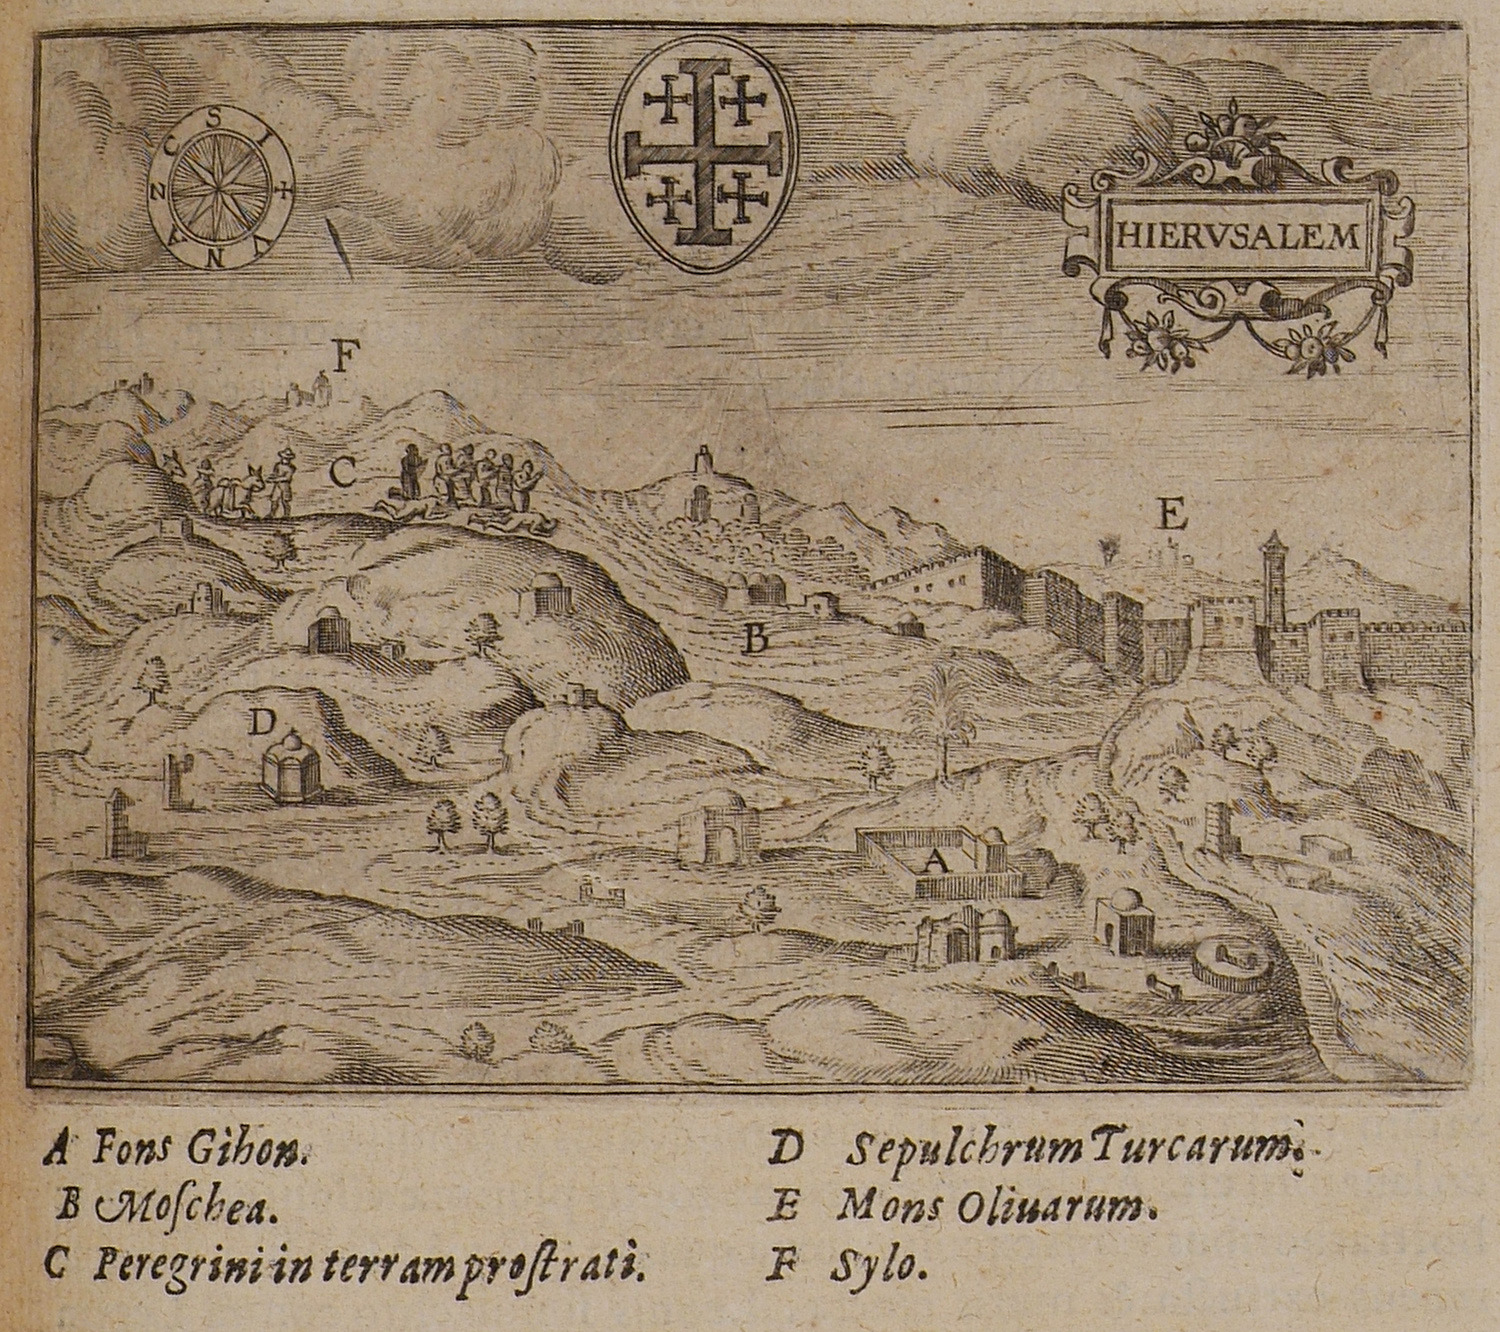 HIERVSALEM
S
I
+
V
N
A
N
C
F
C
E
B
D
A
A Fons Gihon.
B Moſchea.
C Peregrini in terram proſtrati.
D Sepulchrum Turcarum.
E Mons Oliuarum.
F Sylo.